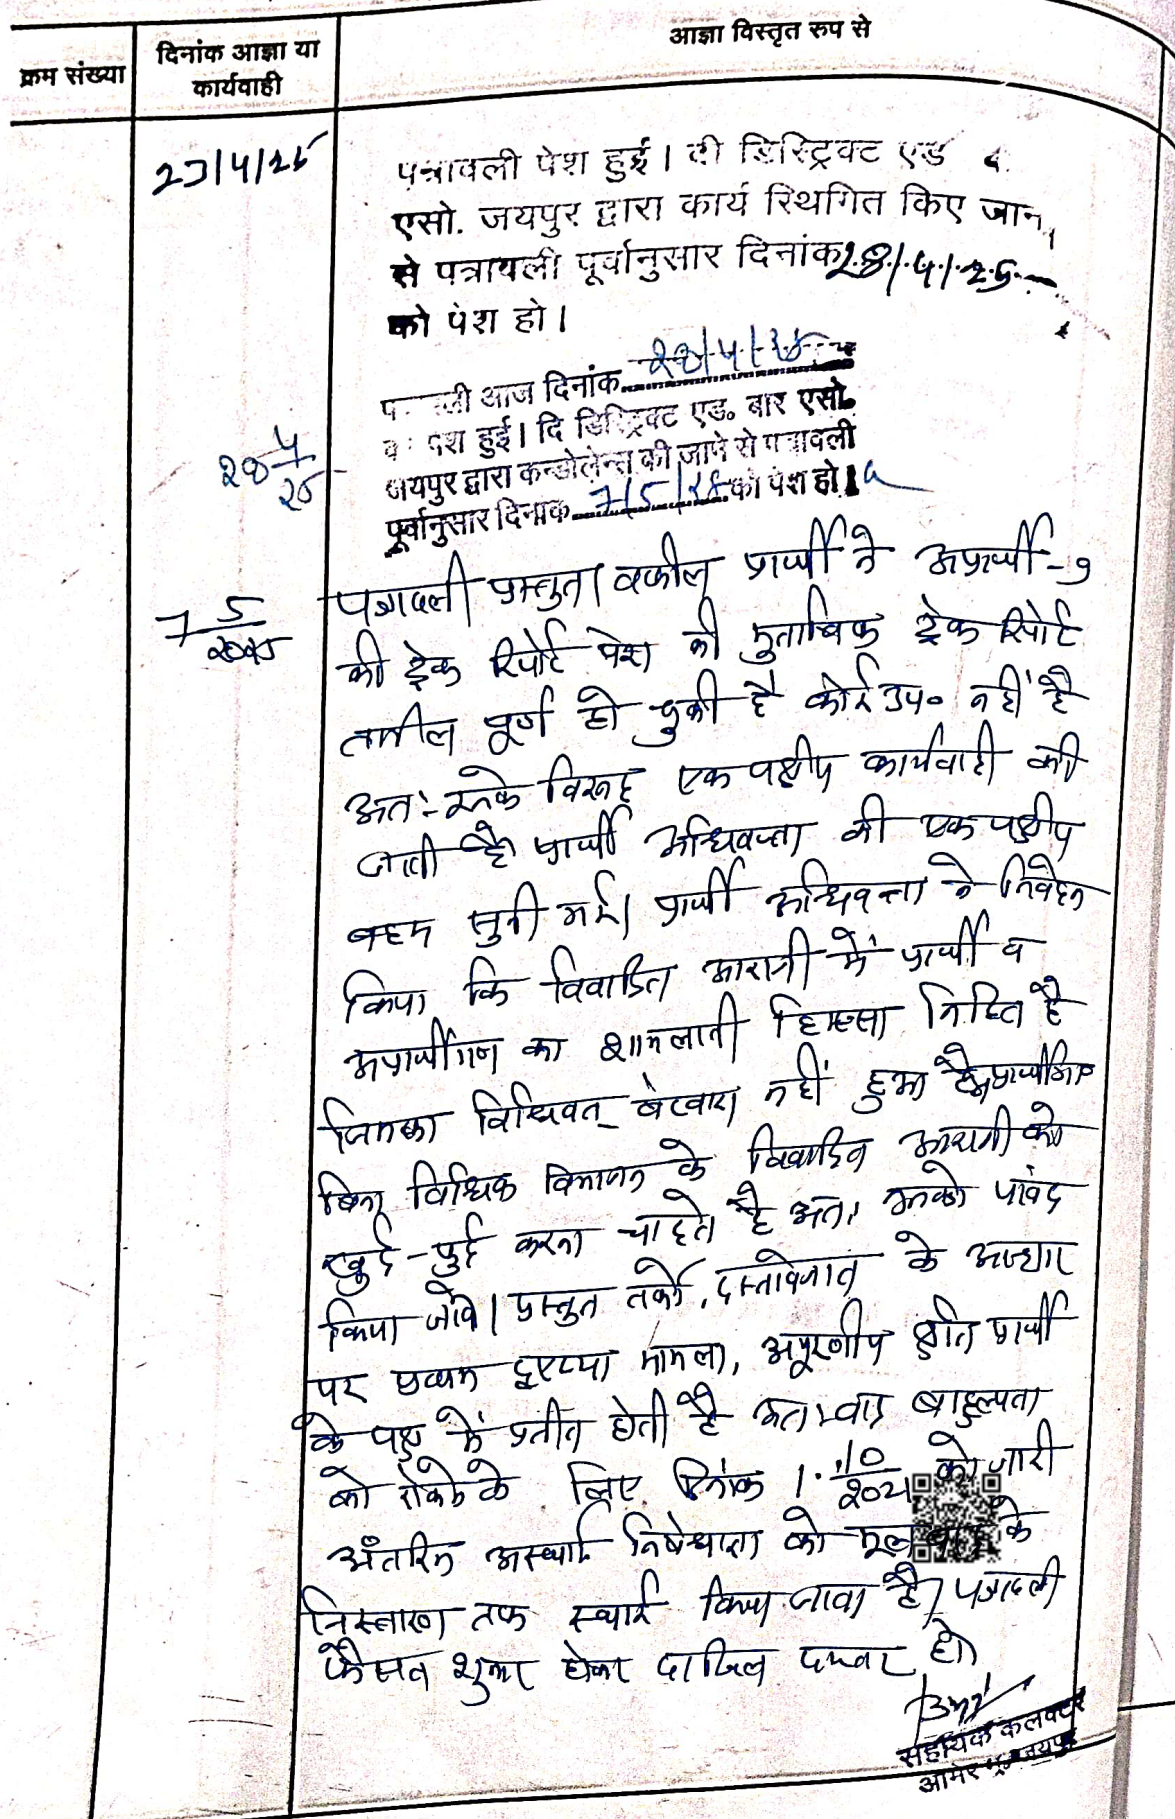 क्रम संख्या
दिनांक आज्ञा या
कार्यवाही
आज्ञा विस्तृत रुप से
पत्रावली पेश हुई। दी डिस्ट्रिक्ट एड
एसो. जयपुर द्वारा कार्य स्थिगित किए जान
से पत्रायली पूर्वानुसार दिनांक 28/4/25
को पेश हो।
28/4/25
आज दिनांक
पेश हुई। दि डिस्ट्रिक्ट एड० बार एसो.
जयपुर द्वारा कन्डोलेन्स की जाने से पत्रावली
पूर्वानुसार दिनांक 7/5/25 को पेश हो।
7 5/2025
पत्रावली प्रस्तुत। वकील प्रार्थी ने अप्रार्थी-9
की ट्रेक रिपोर्ट पेश की मुताबिक ट्रेक रिपोर्ट
तामील पूर्ण हो चुकी है कोई उप० नहीं है
अतः उसके विरूद्ध एक पक्षीय कार्यवाही की
जाती है। प्रार्थी अधिवक्ता की एक पक्षीय
बहस सुनी गई। प्रार्थी अधिवक्ता ने निवेदन
किया कि विवादित आराजी में प्रार्थी व
अप्रार्थीगण का शामलाती हिस्सा निहित है
जिसका विधिवत् बंटवारा नहीं हुआ है अप्रार्थीगण
बिना विधिक विभाजन के विवादित आराजी को
खुर्द-पुर्द करना चाहते है अतः उनको पाबंद
किया जावे। प्रस्तुत तर्को, दस्तावेजात के आधार
पर प्रथम दृष्टया मामला, अपूरणीय क्षति प्रार्थी
के पक्ष में प्रतीत होती है अतः वाद बाहुल्यता
को रोकने के लिए दिनांक 1.10/2021 को जारी
अंतरिम अस्थाई निषेधाज्ञा को मूल वाद के
निस्तारण तक स्थाई किया जाता है। पत्रावली
फैसल शुमार होकर दाखिल दफ्तर हो।
सहायक कलक्टर
आमेर जयपुर